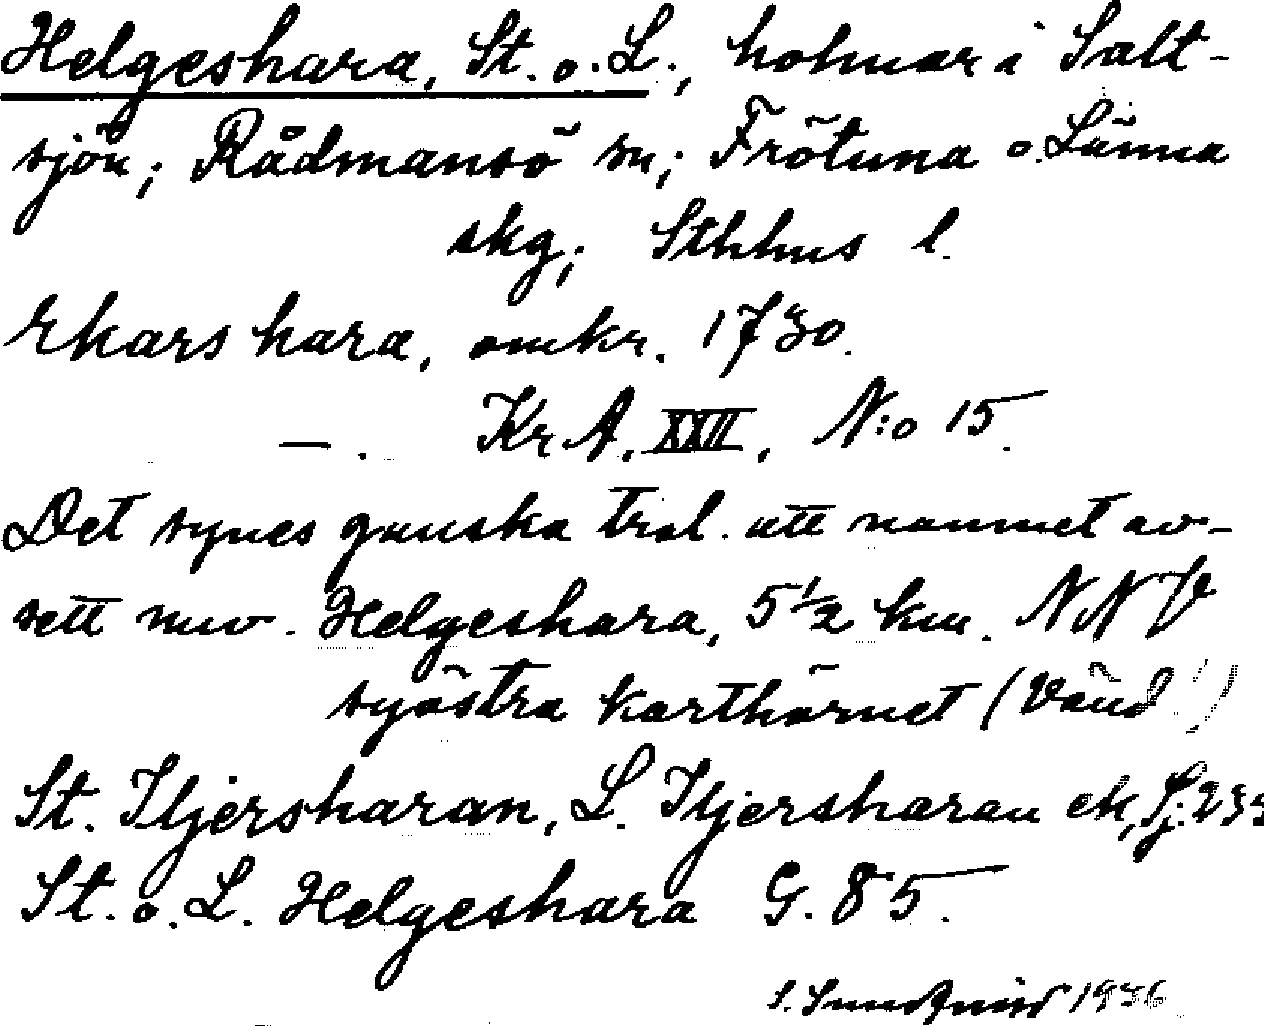 Helgeshara, St. o. L., holmar i Salt-
sjön; Rådmansö sn; Frötuna o. Länna
skg; Sthlms l.
Ekarshara, omkr. 1730.
—. KrA. XXII, N:o 15.
Det synes ganska trol. att namnet av-
sett nuv. Helgeshara, 5 1/2 km. NNV
syöstra karthörnet (Vänd!)
St. Iljersharan, L. Iljersharan ek,
St. o. L. Helgeshara G. 85.
1936